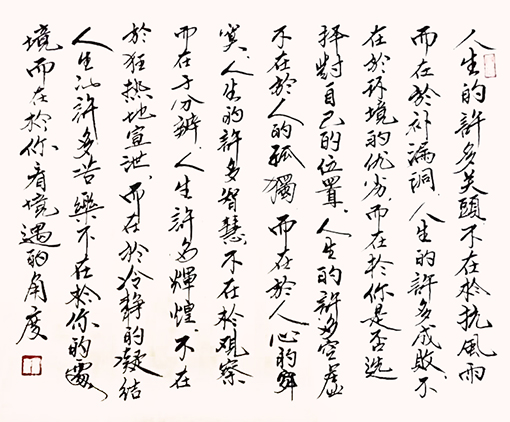 人生的許多关頭,不在於抗風雨
而在於补漏洞,人生的許多成敗,不
在於环境的优劣,而在於你是否选
择對自己的位置,人生的許多空虛
不在於人的孤獨,而在於人心的
寞,人生的許多智慧,不在於观察
而在于分辨,人生許多輝煌,不在
於狂热地宣泄,而在於冷静的凝结
人生的許多苦樂不在於你的處
境而在於你看境遇的角度